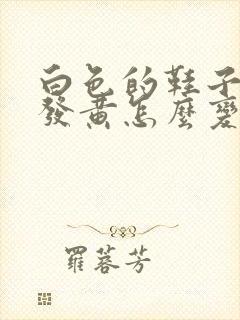 白色的鞋子
發黃怎麼變
羅蓉芳